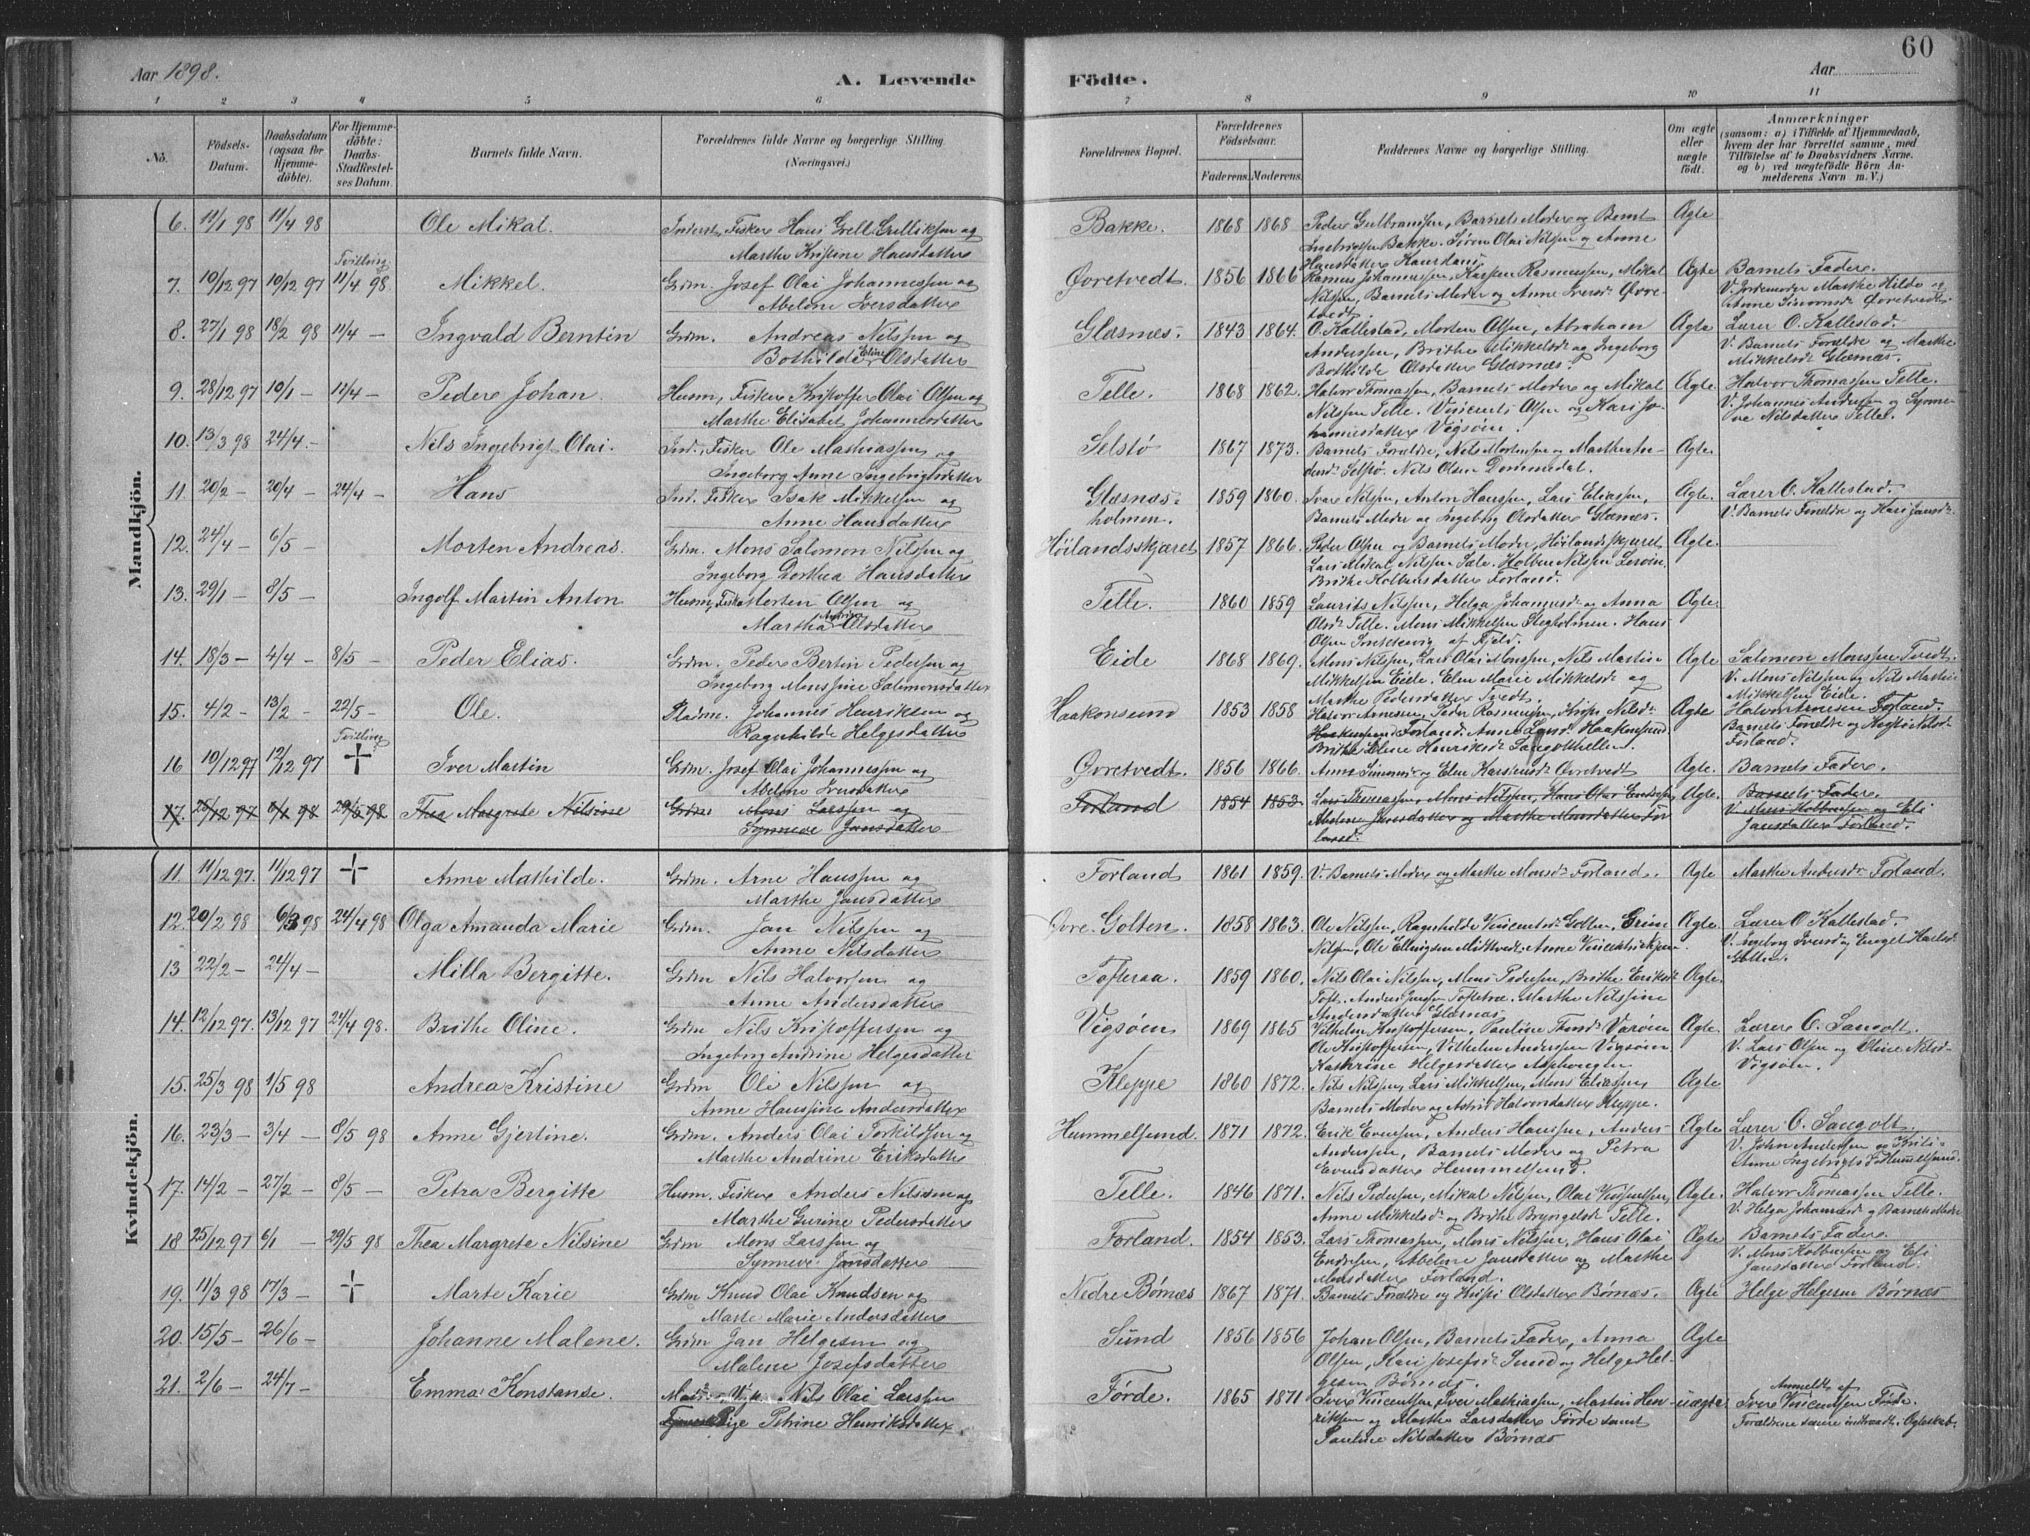 60
Aar 1898.
A. Levende Födte.
Aar
1 2 3 4 5 6 7 8 9 10 11
No.
Födsels-Datum.
Daabsdatum (ogsaa for Hjemmedöbte).
For Hjemmedöbte: Daabs-Stadfestelses Datum.
Barnets fulde Navn.
Forældrenes fulde Navne og borgerlige Stilling.
(Næringsvei.)
Forældrenes Bopæl.
Forældrenes Födselsaar.
Faderens. Moderens.
Faddernes Navne og borgerlige Stilling.
Om ægte eller uægte födt.
Anmærkninger
(saasom: a) i Tilfælde af Hjemmedaab, hvem der har forrettet samme, med Tilföielse af to Daabsvidners Navne. og b) ved uægtefödte Börn Anmelderens Navn m. V.)
Mandkjön.
6. 11/1 98 11/4 98 Ole Mikal. Fisker Hans Grell og Bakke. 1868 1868 Peder Gulbrandsen, Barnets Moder og Bernt Ægte
Marthe Kristine Hansdatter Ingebrigtsen Bakke. Søren Olai Nilsen og Anne
Tvilling Hansdatter
7. 10/12 97 10/12 97 11/4 98 Mikkel. Grdm. Josef Olai Johannessen og Øvretvedt. 1856 1866 Rasmus Johannessen, Karsten Rasmussen, Mikal Ægte Barnets Fader.
Abelone Iversdatter Nilsen, Barnets Moder og Anne Iversd. Øvretvedt. V. Jordemoder Marthe Hilde og
8. 27/1 98 18/2 98 11/4 — Ingvald Berntin Grdm. Andreas Nilsen og Glæsnes. 1843 1864. O. Kallestad, Morten Olsen, Abraham Ægte Lærer O. Kallestad.
Bothilde Eline Olsdatter Andersen, Brithe Mikkelsd. og Ingeborg V. Barnets Forældre og Marthe
Bothilde Olsdatter Glæsnes. Mikkelsd. Glæsnæs.
9. 28/12 97 10/1 — 11/4 — Peder Johan. Husm, Fisker Kristoffer Olai Olsen og Telle. 1868 1862. Halvor Thomassen, Barnets Moder og Mikal Ægte Halvor Thomassen Telle.
Marthe Elisabet Johannesdatter Nilsen Telle. Vincents Olsen og Kari Jo- V. Johannes Andersen og Synne-
hannesdatter Vigsøen. ve Nilsdatter Telle.
10. 13/3 98 24/4 — Nils Ingebrigt Olai. Ind., Fisker Ole Mathiassen og Selstø. 1867 1873. Barnets Forældre, Nils Mortensen og Marthe An- Ægte.
Ingeborg Anne Ingebrigtsdatter dersd. Selstø. Nils Olsen Dommedal.
11. 20/2 — 20/4 — 24/4 — Hans Ind. Fisker Isak Mikkelsen og Glæsnæs- 1859 1860. Iver Nilsen, Anton Hansen, Lars Eliassen, Ægte. Lærer O. Kallestad.
Anne Hansdatter holmen. Barnets Moder og Ingeborg Olsdatter Glæsnes. V. Barnets Forældre og Kari Jansd.
12. 24/4 — 6/5 — Morten Andreas. Grdm. Mons Salomon Nilsen og Høilandsskjæret 1857 1866. Peder Olsen og Barnets Moder, Høilandsskjæret Ægte.
Ingeborg Dorthea Hansdatter Lars Mikal Nilsen Sæle. Holben Nilsen Lerøen.
Brithe Holbensdatter Forland.
13. 29/1 — 8/5 — Ingolf Martin Anton Husm, Fisker Morten Olsen og Telle. 1860 1859 Laurits Nilsen, Helga Johannesd. og Anna Ægte.
Martha Olsdatter Olsd. Telle. Mons Mikkelsen Skogholmen. Hans
14. 18/3 — 4/4 — 8/5 — Peder Elias. Grdm. Peder Bertin Pedersen og Eide 1868 1869. Mons Nilsen, Lars Olai Monsen, Nils Martin Ægte Salomon Monsen Tvedt.
Ingeborg Monsine Salomonsdatter Mikkelsen Eide. Elen Marie Mikkelsd. og V. Mons Nilsen og Nils Martin
Marthe Pedersdatter Tvedt. Mikkelsen Eide.
15. 4/2 — 13/2 — 22/5 — Ole. Pladsm. Johannes Henriksen og Haakonsund 1853 1858 Halvor Arnesen, Peder Rasmussen, Nilsd. Ægte Halvor Arnesen Forland.
Ragnhilde Helgesdatter Haakonsund Forland. Anne Larsd. Haakonsund. Barnets Forældre og
Tvilling Brithe Eline Henriksd. Forland.
16 10/12 97 12/12 97 + Iver Martin Grdm. Josef Olai Johannessen og Øvretvedt. 1856 1866. Anne og Elen Karstensd. Øvretvedt Ægte. Barnets Fader.
Abelone Iversdatter
17. 25/12 97 6/1 98 29/5 98 Thea Margrete Nilsine Grdm. Mons Larssen og Forland 1854 1853. Lars Thomassen, Mons Nilsen, Hans Olai Endresen, Ægte. Barnets Fader.
Synneve Jansdatter Abelone Jansdatter og Marthe Monsdatter For- V. Mons Holbensen og Eli
land. Jansdatter Forland.
Kvindekjön.
11. 11/12 97. 11/12 97 + Anne Mathilde. Grdm. Arne Hanssen og Forland 1861 1859. V. Barnets Moder og Marthe Monsd. Forland. Ægte Marthe Andersd. Forland.
Marthe Jansdatter
12. 20/2 98 6/3 98 24/4 98 Olga Amanda Marie Grdm. Jan Nilsen og Øvre Golten. 1858 1863. Ole Nilsen, Ragnhilde Vincentsd. Golten, Ægte. Lærer O. Kallestad.
Anne Nilsdatter Nilsen, Ole Ellingsen Midtvedt. Anne V. Ingeborg Iversd. og Engel
Golten.
13 22/2 — 24/4 — Milla Bergitte. Grdm Nils Halvorsen og Tofteraa. 1859 1860. Nils Olai Nilsen, Mons Pedersen, Brithe Eriksd. Ægte.
Anne Andersdatter Toft. Anders Jensen Tofteraa. Marthe Nilsine
Andersdatter Glæsnæs.
14. 12/12 97. 13/12 97 24/4 98. Brithe Oline. Grdm Nils Kristoffersen og Vigsøen 1869 1865 Vilhelm Kristoffersen, Pauline Varøen Ægte. Lærer O. Sangolt.
Ingeborg Andrine Helgesdatter Ole Kristoffersen, Vilhelm Andersen Vigsøen V. Lars Olsen og Oline Nilsd.
Kathrine Helgesdatter Vigsøen.
15. 25/3 98 1/5 98 Andrea Kristine Grdm Ole Nilsen og Kleppe 1860 1872. Nils Nilsen, Lars Mikkelsen, Mons Eliassen, Ægte
Anne Hanssine Andersdatter Barnets Moder og Astrid Halvorsdatter Kleppe.
16. 23/3 — 3/4 — 8/5 98 Anne Gjertine. Grdm. Anders Olai Torkildsen og Hummelsund. 1871 1872. Erik Evensen, Anders Hansen, Anders Ægte Lærer O. Sangolt.
Marthe Andrine Eriksdatter Andersen, Barnets Moder og Petra V. John Andersen og
Evensdatter Hummelsund. Anne Ingebrigts. Hummelsund.
17. 14/2 — 27/2 — 8/5 — Petra Bergitte Husm. Fisker Anders Nilsen og Telle. 1846 1871. Nils Pedersen, Mikal Nilsen, Olai Vincentsen, Ægte. Halvor Thomassen Telle.
Marthe Gurine Pedersdatter Anne Mikkelsd. og Brithe Bryngelsd. Telle. V. Helga Johannesd. og Barnets Moder
18 25/12 97 6/1 — 29/5 98 Thea Margrete Nilsine Grdm Mons Larssen og Forland. 1854 1853. Lars Thomassen, Mons Nilsen, Hans Olai Ægte Barnets Fader.
Synneve Jansdatter Endresen, Abelone Jansdatter og Marthe V. Mons Holbensen og Eli
Monsdatter Forland. Jansdatter Forland.
19. 11/3 98 17/3 — + Marte Karie Grdm Knud Olai Knudsen og Nedre Børnæs 1867 1871. Barnets Forældre og Olsdatter Børnæs. Ægte Helge Helgesen Børnæs
Marte Marie Andersdatter
20. 15/5 — 26/6 — Johanne Malene. Grdm Jan Helgesen og Sund 1856 1856 Johan Olsen, Barnets Fader, Anna Ægte
Malene Josefsdatter Olsen, Kari Josefsd. Sund og Helge Hel-
gesen Børnæs.
21. 2/6 — 24/7 — Emma Konstanse. Nils Olai Larssen Førde. 1865 1871 Iver Vincentsen, Iver Mathiassen, Martin Hen- uægte Anmeldt af
Pige Petrine Henriksdatter riksen og Marthe Larsdatter Førde samt Iver Vincentsen Førde.
Pauline Nilsdatter Børnæs Forældrene senere indtraadt i Ægteskab.